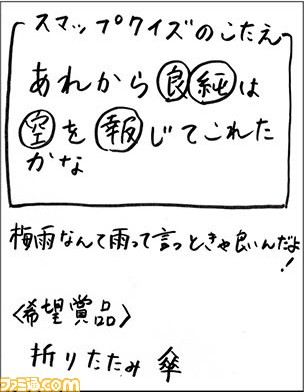 スマップクイズのこたえ
あれから良純は
空を報じてこれた
かな
梅雨なんて雨って言っときゃ良いんだよ!
<希望賞品>
折りたたみ 傘
ファミ通.com